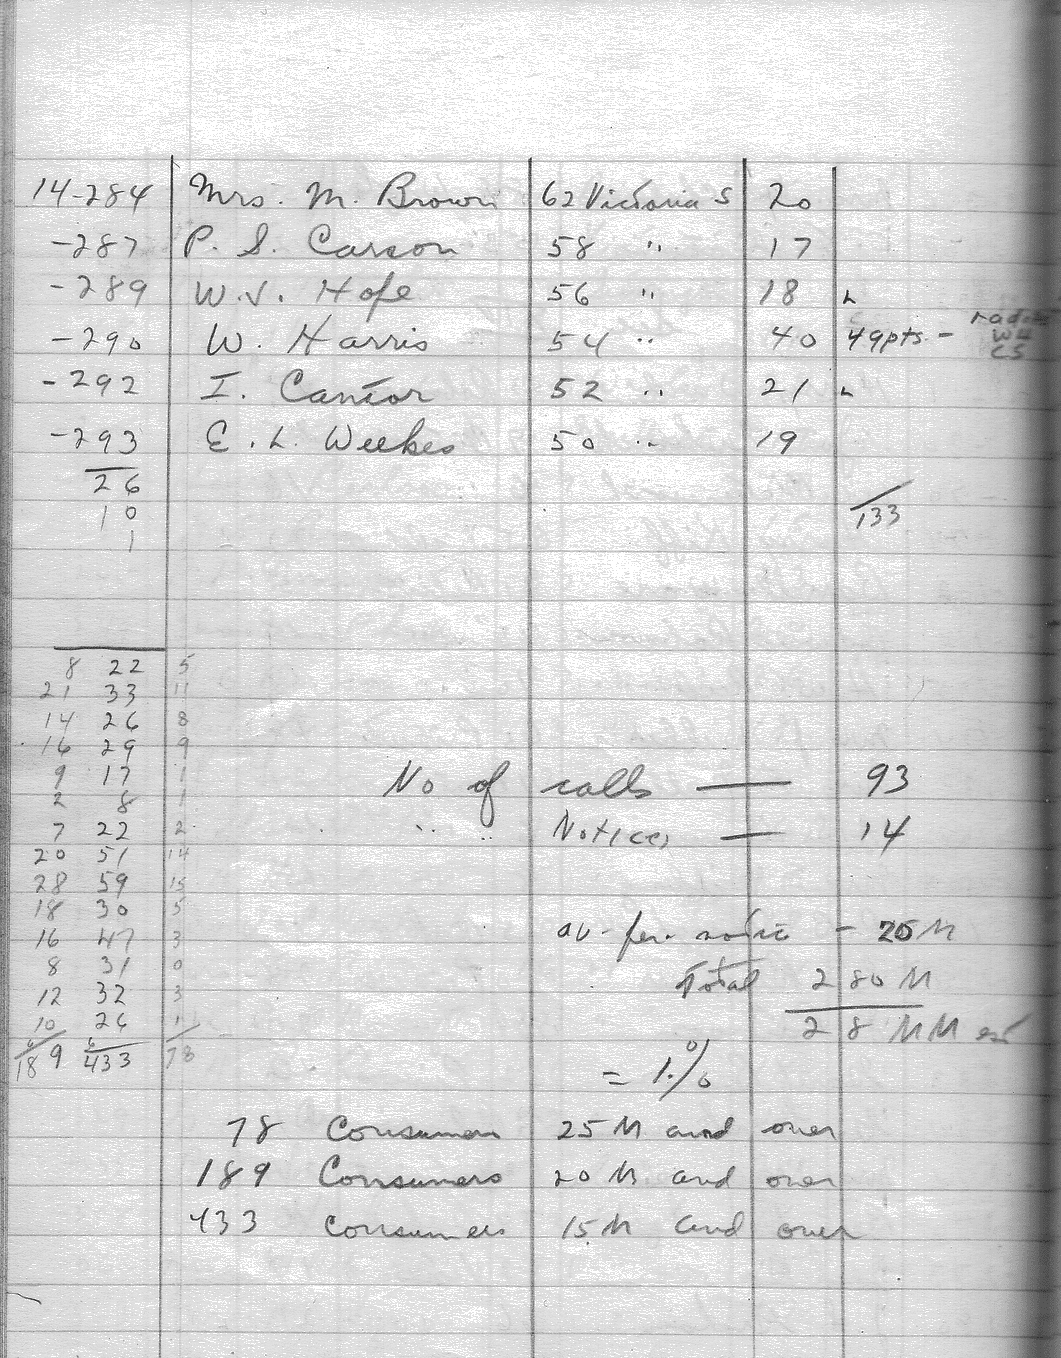 14-284 Mrs. M. Brown 62 Victoria S 20
-287 P. S. Carson 58 " 17
-289 W. J. Hope 56 " 18
-290 W. Harris 54 " 40 49pts. - radio WH CS
-292 I. Cantor 52 " 21
-293 E. L. Weekes 50 " 19
26
10 133
1
8 22 5
21 33 11
14 26 8
16 29 9
9 17 1
2 8 1
No of calls — 93
7 22 2
" " Notices — 14
20 51 14
28 59 15
18 30 5
16 47 3
av. per. notice - 20 M
8 31 0
Total 280 M
12 32 3
10 26 1
28 MM
189 433 78
= 1.%
78 Consumers 25 M and over
189 Consumers 20 M and over
433 Consumers 15 M and over